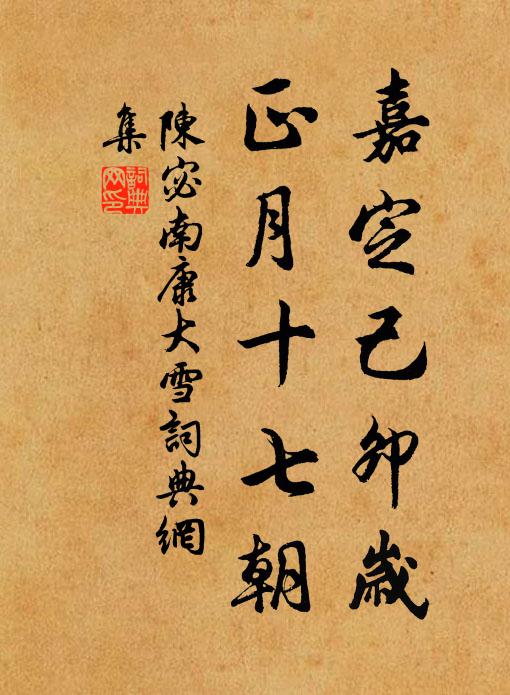 嘉定己卯歲
正月十七朝
陳宓南康大雪詞典網
集
詞典
網印